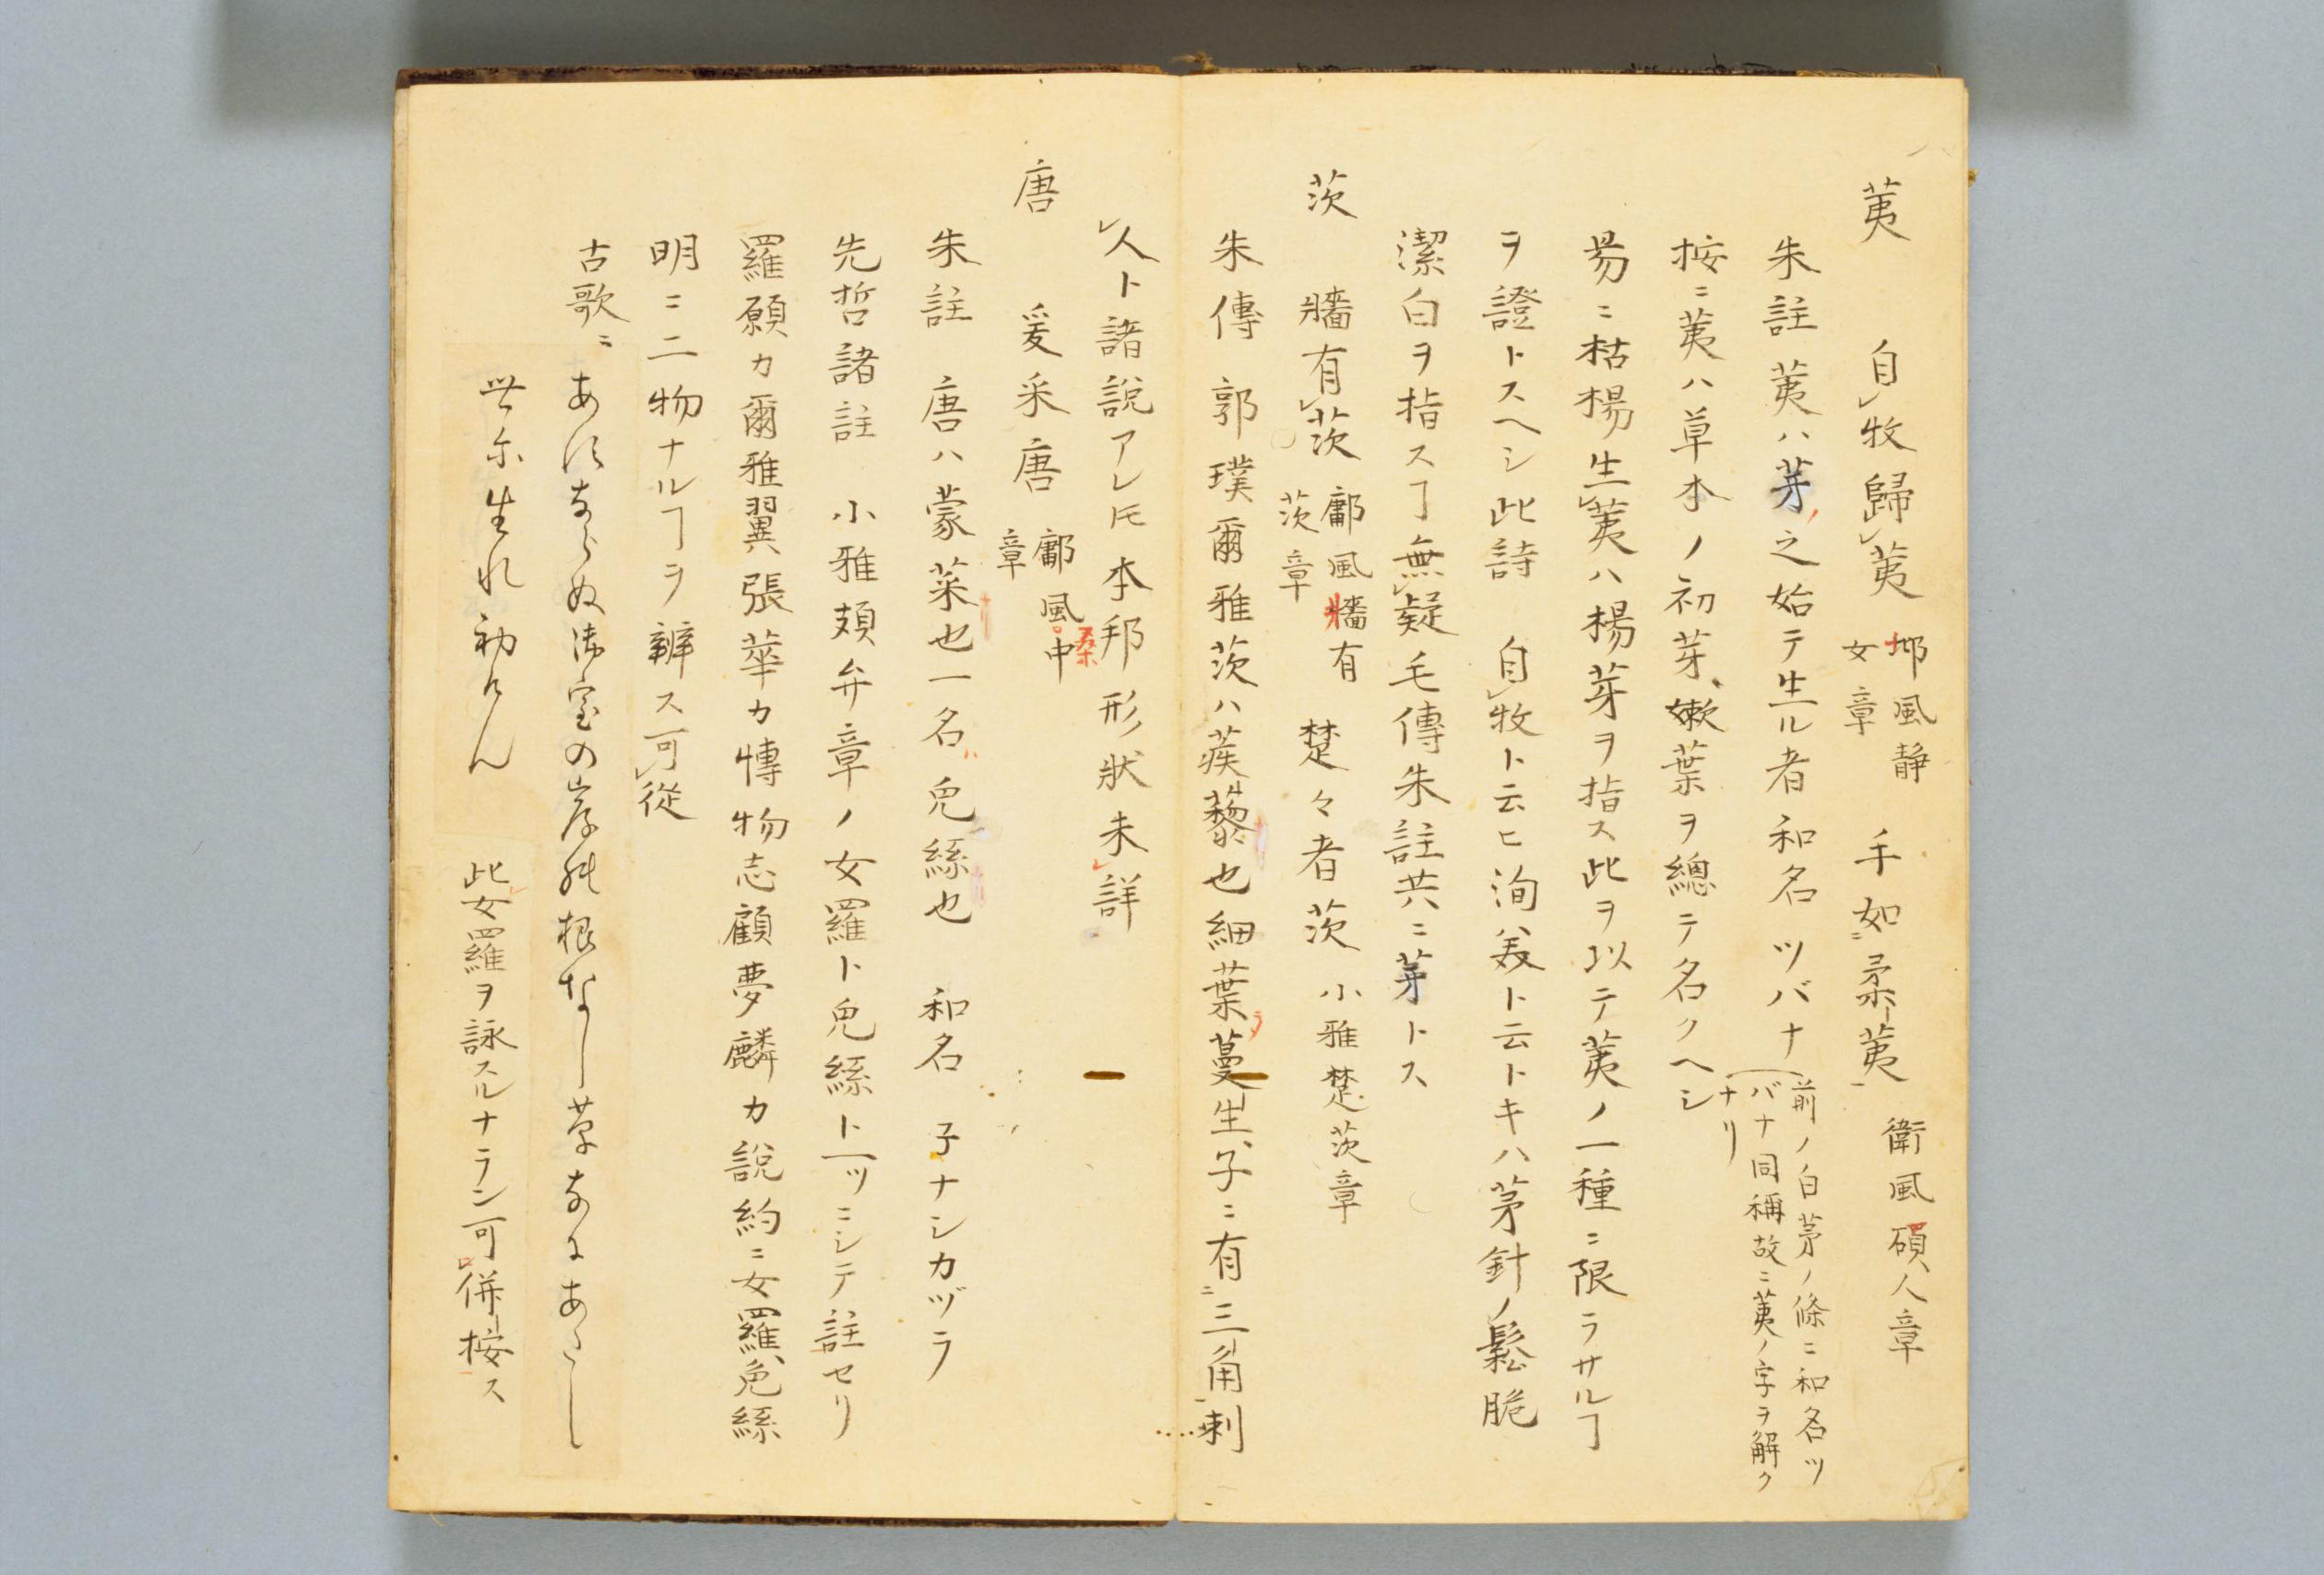 荑
自牧歸荑 邶風靜女章 手如柔荑 衛風碩人章
朱註 荑ハ茅之始テ生ル者 和名 ツバナ 前ノ白茅ノ條ニ和名ツバナ同稱故ニ荑ノ字ヲ解クナリ
按ニ荑ハ草木ノ初芽、嫩葉ヲ總テ名クヘシ
昜ニ枯楊生荑ハ楊芽ヲ指ス此ヲ以テ荑ノ一種ニ限ラサルヿ
ヲ證トスヘシ此詩 自牧ト云ヒ洵美ト云トキハ茅針ノ鬆脆
潔白ヲ指スヿ無疑毛傳朱註共ニ茅トス
茨
牆有茨 鄘風牆有茨章 楚々者茨 小雅楚茨章
朱傳 郭璞爾雅茨ハ蒺藜也細葉蔓生子ニ有三角刺
人ト諸說アレㇳモ本邦形狀未詳
唐
爰采唐 鄘風桑中章
朱註 唐ハ蒙菜也一名兔絲也 和名 子ナシカヅラ
先哲諸註 小雅頍弁章ノ女羅ト兔絲ト一ツニシテ註セリ
羅願カ爾雅翼張華カ愽物志顧夢麟カ說約ニ女羅、兔絲
明ニ二物ナルヿヲ辨ス可從
古歌ニ あ なら ぬ 室の岸 根なし草 あ し
世尓生れ初けん 此女羅ヲ詠スルナラン可併按ス